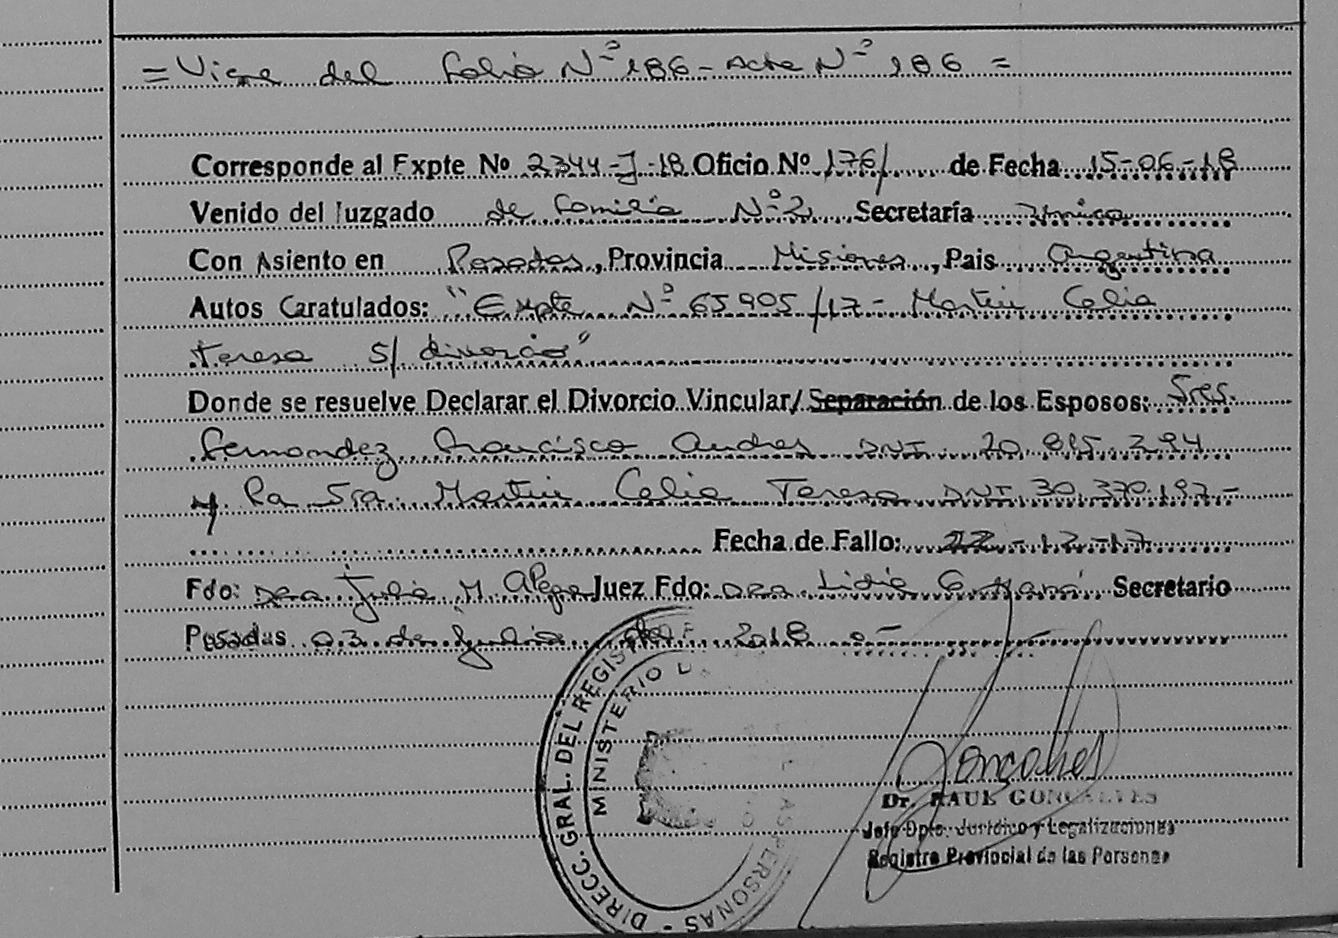 = Viene del Folio Nº 186 - Acta Nº 186 =
Corresponde al Expte Nº 2344-J-18 Oficio Nº 176/ de Fecha 15-06-18
Venido del Juzgado de Familia Nº 2 Secretaría Unica
Con Asiento en Posadas, Provincia Misiones, Pais Argentina
Autos Caratulados: "Expte Nº 65905/17 - Martin Celia
Teresa S/ divorcio"
Donde se resuelve Declarar el Divorcio Vincular/ Separación de los Esposos: Sres.
Fernandez Francisco Andres DNI 20.815.394
y la Sra. Martin Celia Teresa DNI 30.370.197.-
Fecha de Fallo: 22-12-17
Fdo: Dra Julia M. Alega Juez Fdo: Dra. Lidia Secretario
Posadas 03 de Julio de 2018.-
Goncalves
Dr. RAUL GONCALVES
Jefe Dpto. Jurídico y Legalizaciones
Registro Provincial de las Personas
DIRECC. GRAL. DEL REGIS PERSONAS -
MINISTERIO